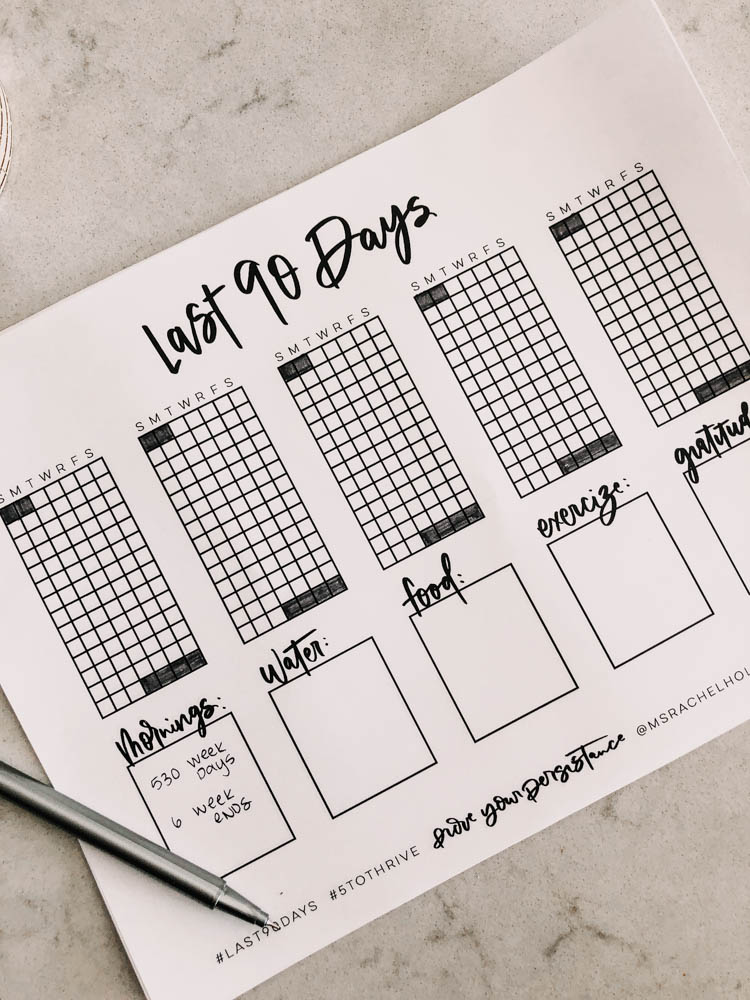 Last 90 Days
S M T W R F S
S M T W R F S
S M T W R F S
S M T W R F S
S M T W R F S
mornings:
530 week
days
6 week
ends
water:
food:
exercize:
gratitud
#LAST90DAYS #5TOTHRIVE prove your persistance @MSRACHELHOL